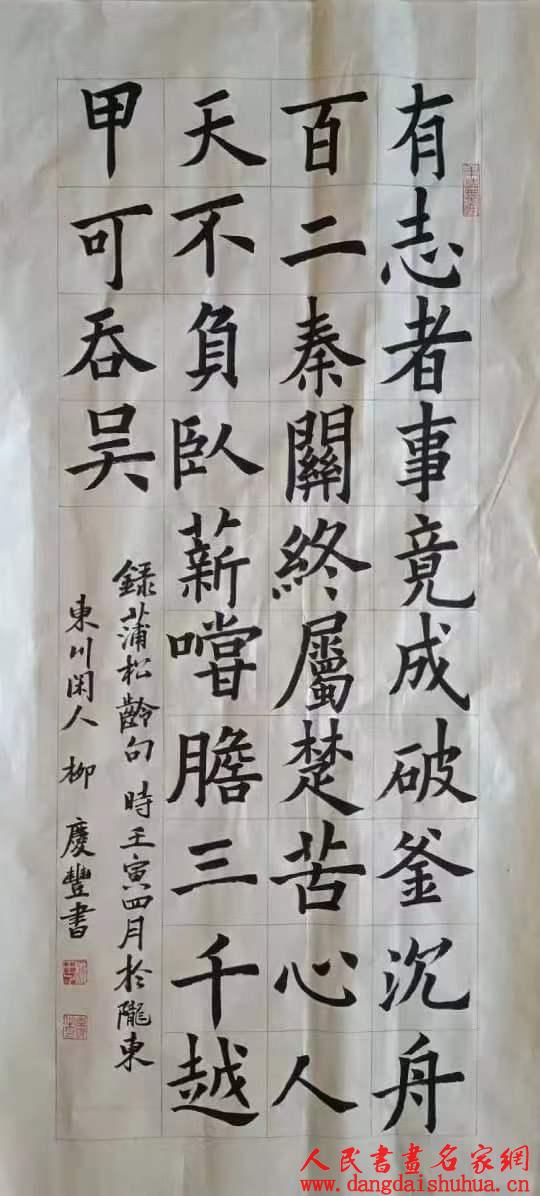 有志者事竟成破釜沉舟
百二秦關終屬楚苦心人
天不負臥薪嚐膽三千越
甲可吞吴
録蒲松齡句 時壬寅四月於隴東
東川闲人 柳 慶豐書
人民書畫名家網
www.dangdaishuhua.cn